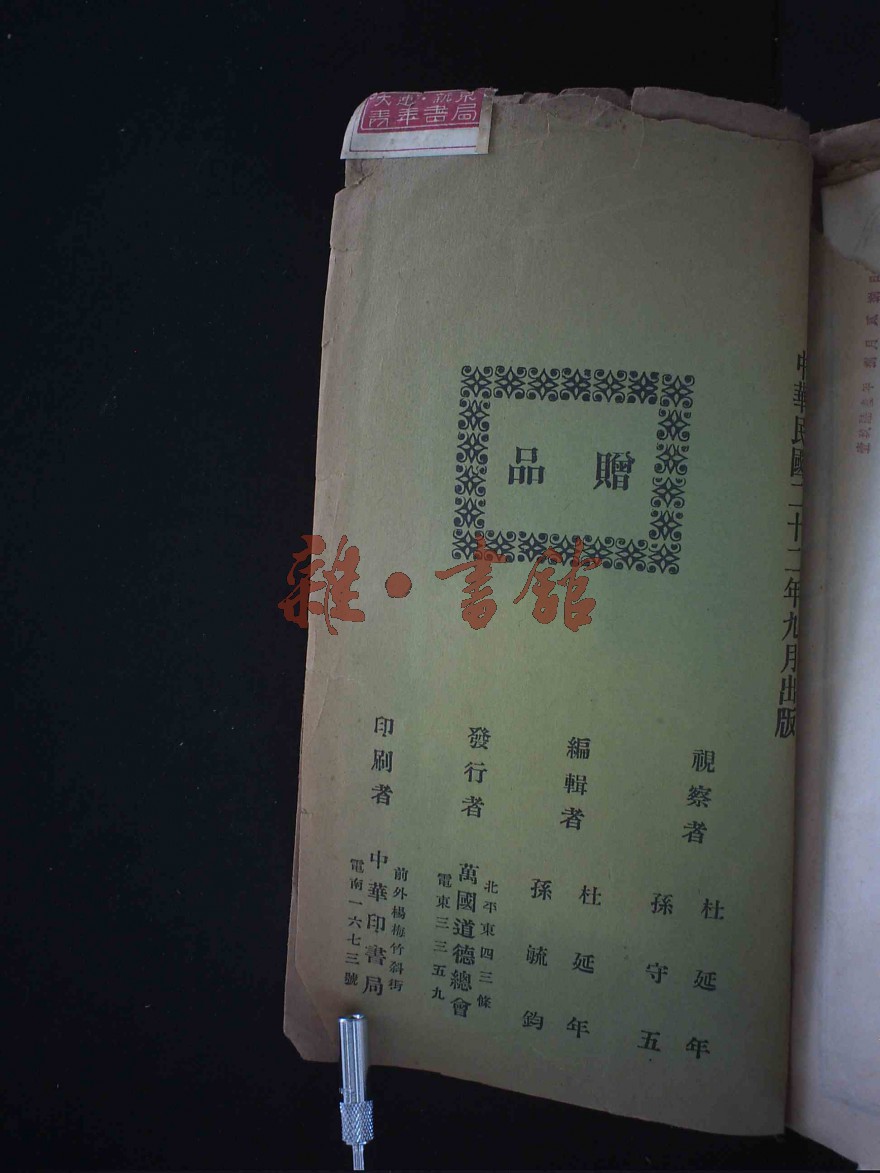 中華民國二十二年九月出版
贈品
視察者
杜延年
孫守五
編輯者
杜延年
孫毓鈞
發行者
北平東四三條
萬國道德總會
電東三三五九
印刷者
前外楊梅竹斜街
中華印書局
電南一六七三號
雜·書館